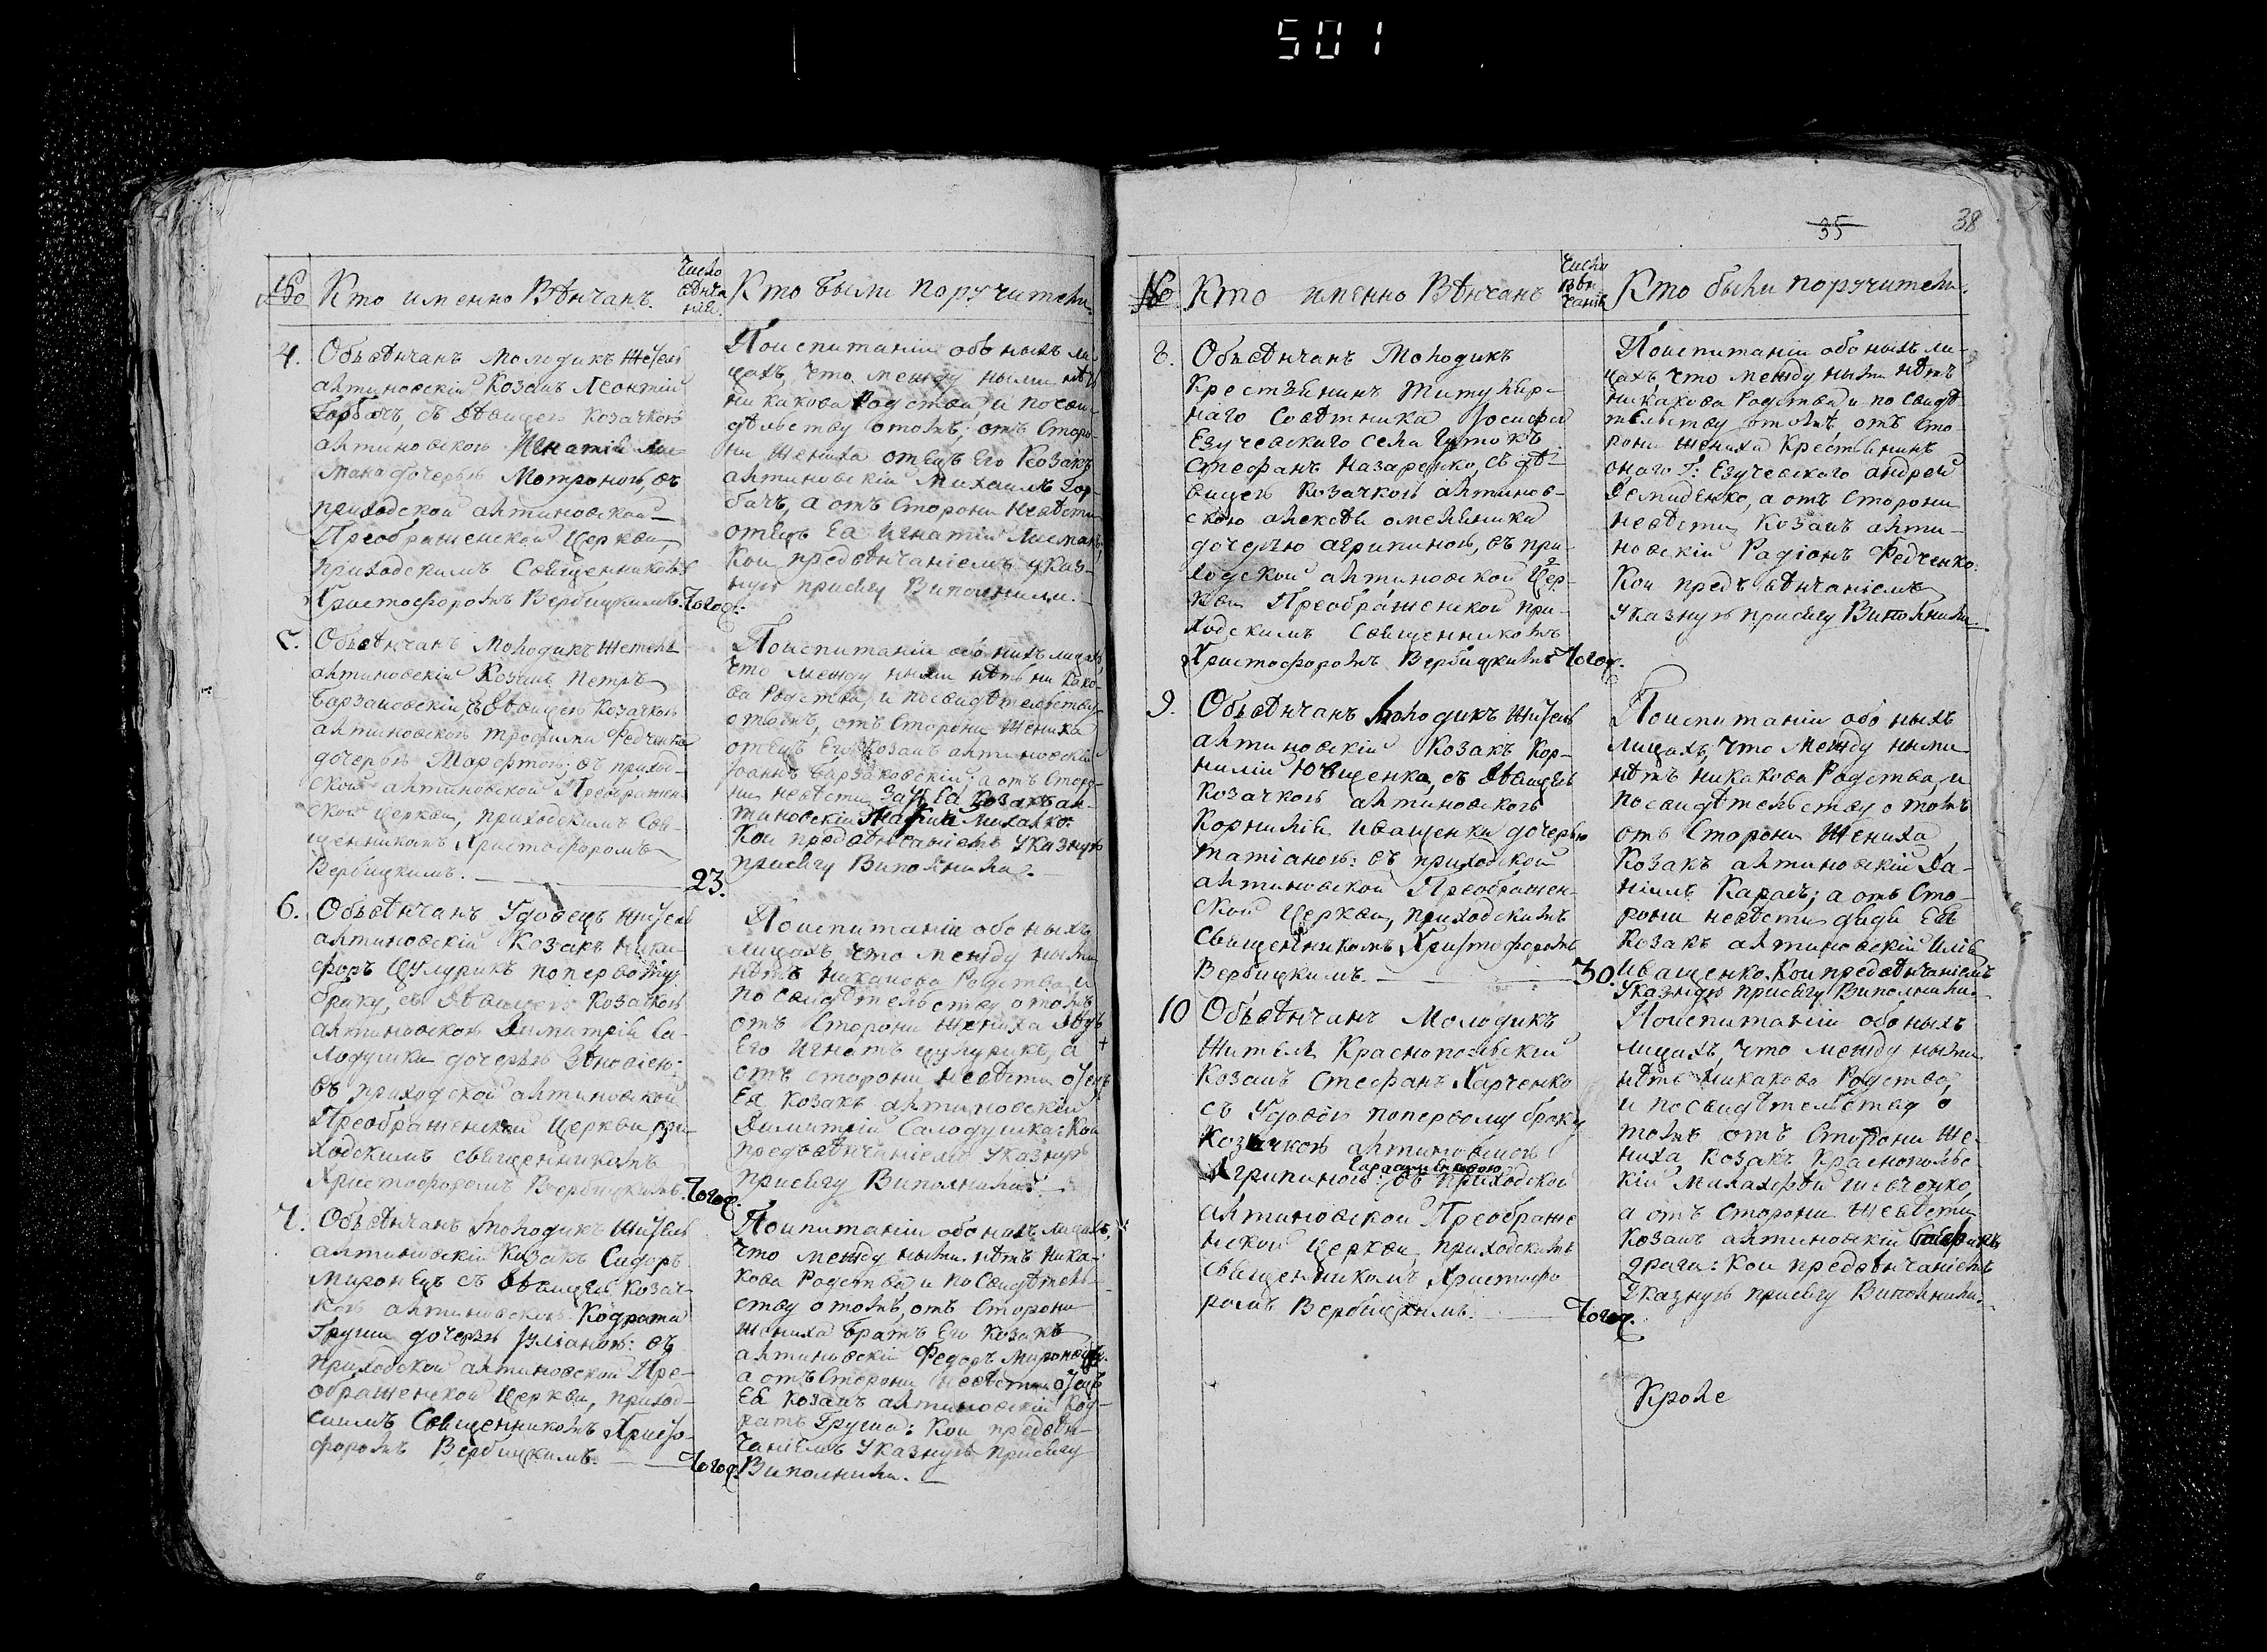 501
35
38
№ Кто именно Вѣнчанъ.
Число вѣнчаній.
Кто были поручители.
4. Обвѣнчанъ молодикъ житель
алтиновскій, Козакъ Леонтій
Горбачъ, съ дѣвицею козачкою
алтиновскою Игнатія
дочерью Мотроною, въ
приходской алтиновской
Преображенской Церкви,
приходскимъ Священникомъ
Христофоромъ Вербицкимъ. тогож.
Поиспитаніи обо ныхъ ли-
цахъ, что между ными нѣтъ
никакова Родства, и посви-
дѣлству отомъ; отъ Сторо-
ни Жениха отецъ Его Козакъ
алтиновскій Михаилъ Гор-
бачъ, а отъ Сторони Невѣсти
отецъ Ея Игнатій
Кои предвѣнчаніемъ указ-
ную присягу Виполнили.
5. Обвѣнчанъ молодикъ житель
алтиновскій Козакъ Петръ
Барзаковскій, съ дѣвицею Козачкою
алтиновскою трофима Федченка
дочерью Марфою: въ приход-
ской алтиновской Преображен-
ской церкви, приходскимъ Свя-
щенникомъ Христофоромъ
Вербицкимъ. 23.
Поиспитаніи обо нихъ лицахъ,
что между ними нѣтъ ни како-
ва Родства, и посвидѣтельству
отомъ, отъ Сторони Жениха
отецъ Его Козакъ алтиновскій
Іоаннъ Барзаковскій: а отъ Сторо-
ни невѣсти Зять Ея Козакъ ал-
тиновскій Михалко
Кои предвѣнчаніемъ Указную
присягу Виполнили.
6. Обвѣнчанъ Удовецъ житель
алтиновскій Козакъ Ники-
форъ Цулурикъ поперво му
браку, съ дѣвицею Козачкою
алтиновскою Димитрія Са-
лодушки дочерью Зѣновіею:
въ приходской алтиновской
Преображенской Церкви при-
ходскимъ священникомъ
Христофоромъ Вербицкимъ. тогож.
Поиспитаніи обо ныхъ
лицахъ что между ними
нѣтъ никакова Родства и
по свидѣтельству отомъ
отъ Сторони жениха дядъ
Его Игнатъ цулурикъ, а
отъ сторони невѣсти отецъ
Ея козакъ алтиновскій
Димитрій Салодушка: Кои
предъвѣнчаніемъ Указную
присягу Виполнили.
7. Обвѣнчанъ молодикъ житель
алтиновскій Козакъ Сидоръ
Миронецъ съ дѣвицею Козач-
кою алтиновскою Кодрата
Груши дочерью Уліаною: въ
приходской алтиновской Пре-
ображенской Церкви, приход-
скимъ Священникомъ Христо-
форомъ Вербицкимъ. тогож.
Поипитаніи обо нихъ лицахъ,
что между ными нѣтъ ника-
кова Родства, и по Свидѣтель-
ству отомъ, отъ Сторони
Жениха братъ Его Козакъ
алтиновскій Федоръ Миронецъ
а отъ Сторони Невѣсти отецъ
Ея Козакъ алтиновскій Код-
ратъ Груша: Кои предвѣн-
чаніемъ Указную присягу
Виполнили.
№ Кто именно Вѣнчанъ
Число вѣнчаній
Кто были поручители.
8. Обвѣнчанъ Молодикъ
Крестьянинъ Титуляр-
наго Совѣтника Іосифа
Езучевского села Гутокъ
Стефанъ Назаренко, съ дѣ-
вицею Козачкою алтинов-
скою алексѣя омеляника
дочерью агрипиною, въ при-
ходской алтиновской Цер-
кви Преображенской при-
ходскимъ Священникомъ
Христофоромъ Вербицкимъ тогож.
Поиспитаніи обо ныхъ ли-
цахъ, что между ными нѣтъ
никакова Родства и по свидѣ-
тельству отомъ, отъ Сто-
рони жениха Крестьянинъ
оного Г: Езучевского андрей
Демиденко, а отъ Сторони
невѣсти Козакъ алти-
новскій Радіонъ Федченко:
Кои предъ вѣнчаніемъ
Указную присягу Виполнили.
9. Обвѣнчанъ молодикъ житель
алтиновскій Козакъ Кор-
нилій Ющенко, съ дѣвицею
козачкою алтиновскою
Корнилія Иващенки дочерью
татіаною: въ приходской
алтиновской Преображен-
ской Церкви, приходскимъ
священникомъ Христофоромъ
Вербицкимъ. 30.
Поиспитаніи обо ныхъ
лицахъ, что между ними
нѣтъ никакова Родства, и
посвидѣтельству отомъ
отъ Сторони Жениха
Козакъ алтиновскій Да-
ніилъ Карась; а отъ Сто-
рони невѣсти дядя Ея
козакъ алтиновскій Илія
Иващенко. Кои предвѣнчаніемъ
Указную присягу Виполнили.
10 Обвѣнчанъ Молодикъ
Житель Краснопольскій
Козакъ Стефанъ Харченко
съ Удовою поперво му браку
Козачкою алтиновскою
Агрипиною: въ приходской
алтиновской Преображе
нской Церкви, приходскимъ
священникомъ Христофо
ромъ Вербицкимъ. тогож.
Поиспитаніи обо ныхъ
лицахъ, что между ными
нѣтъ никакова Родства,
и посвидѣтельству о
томъ отъ Сторони же-
ниха, козакъ Краснополь-
скій Малахѣй шевченко,
а отъ Сторони невѣсти
козакъ алтиновскій
драга: Кои предвѣнчаніемъ
Указную присягу Виполнили.
Кроле